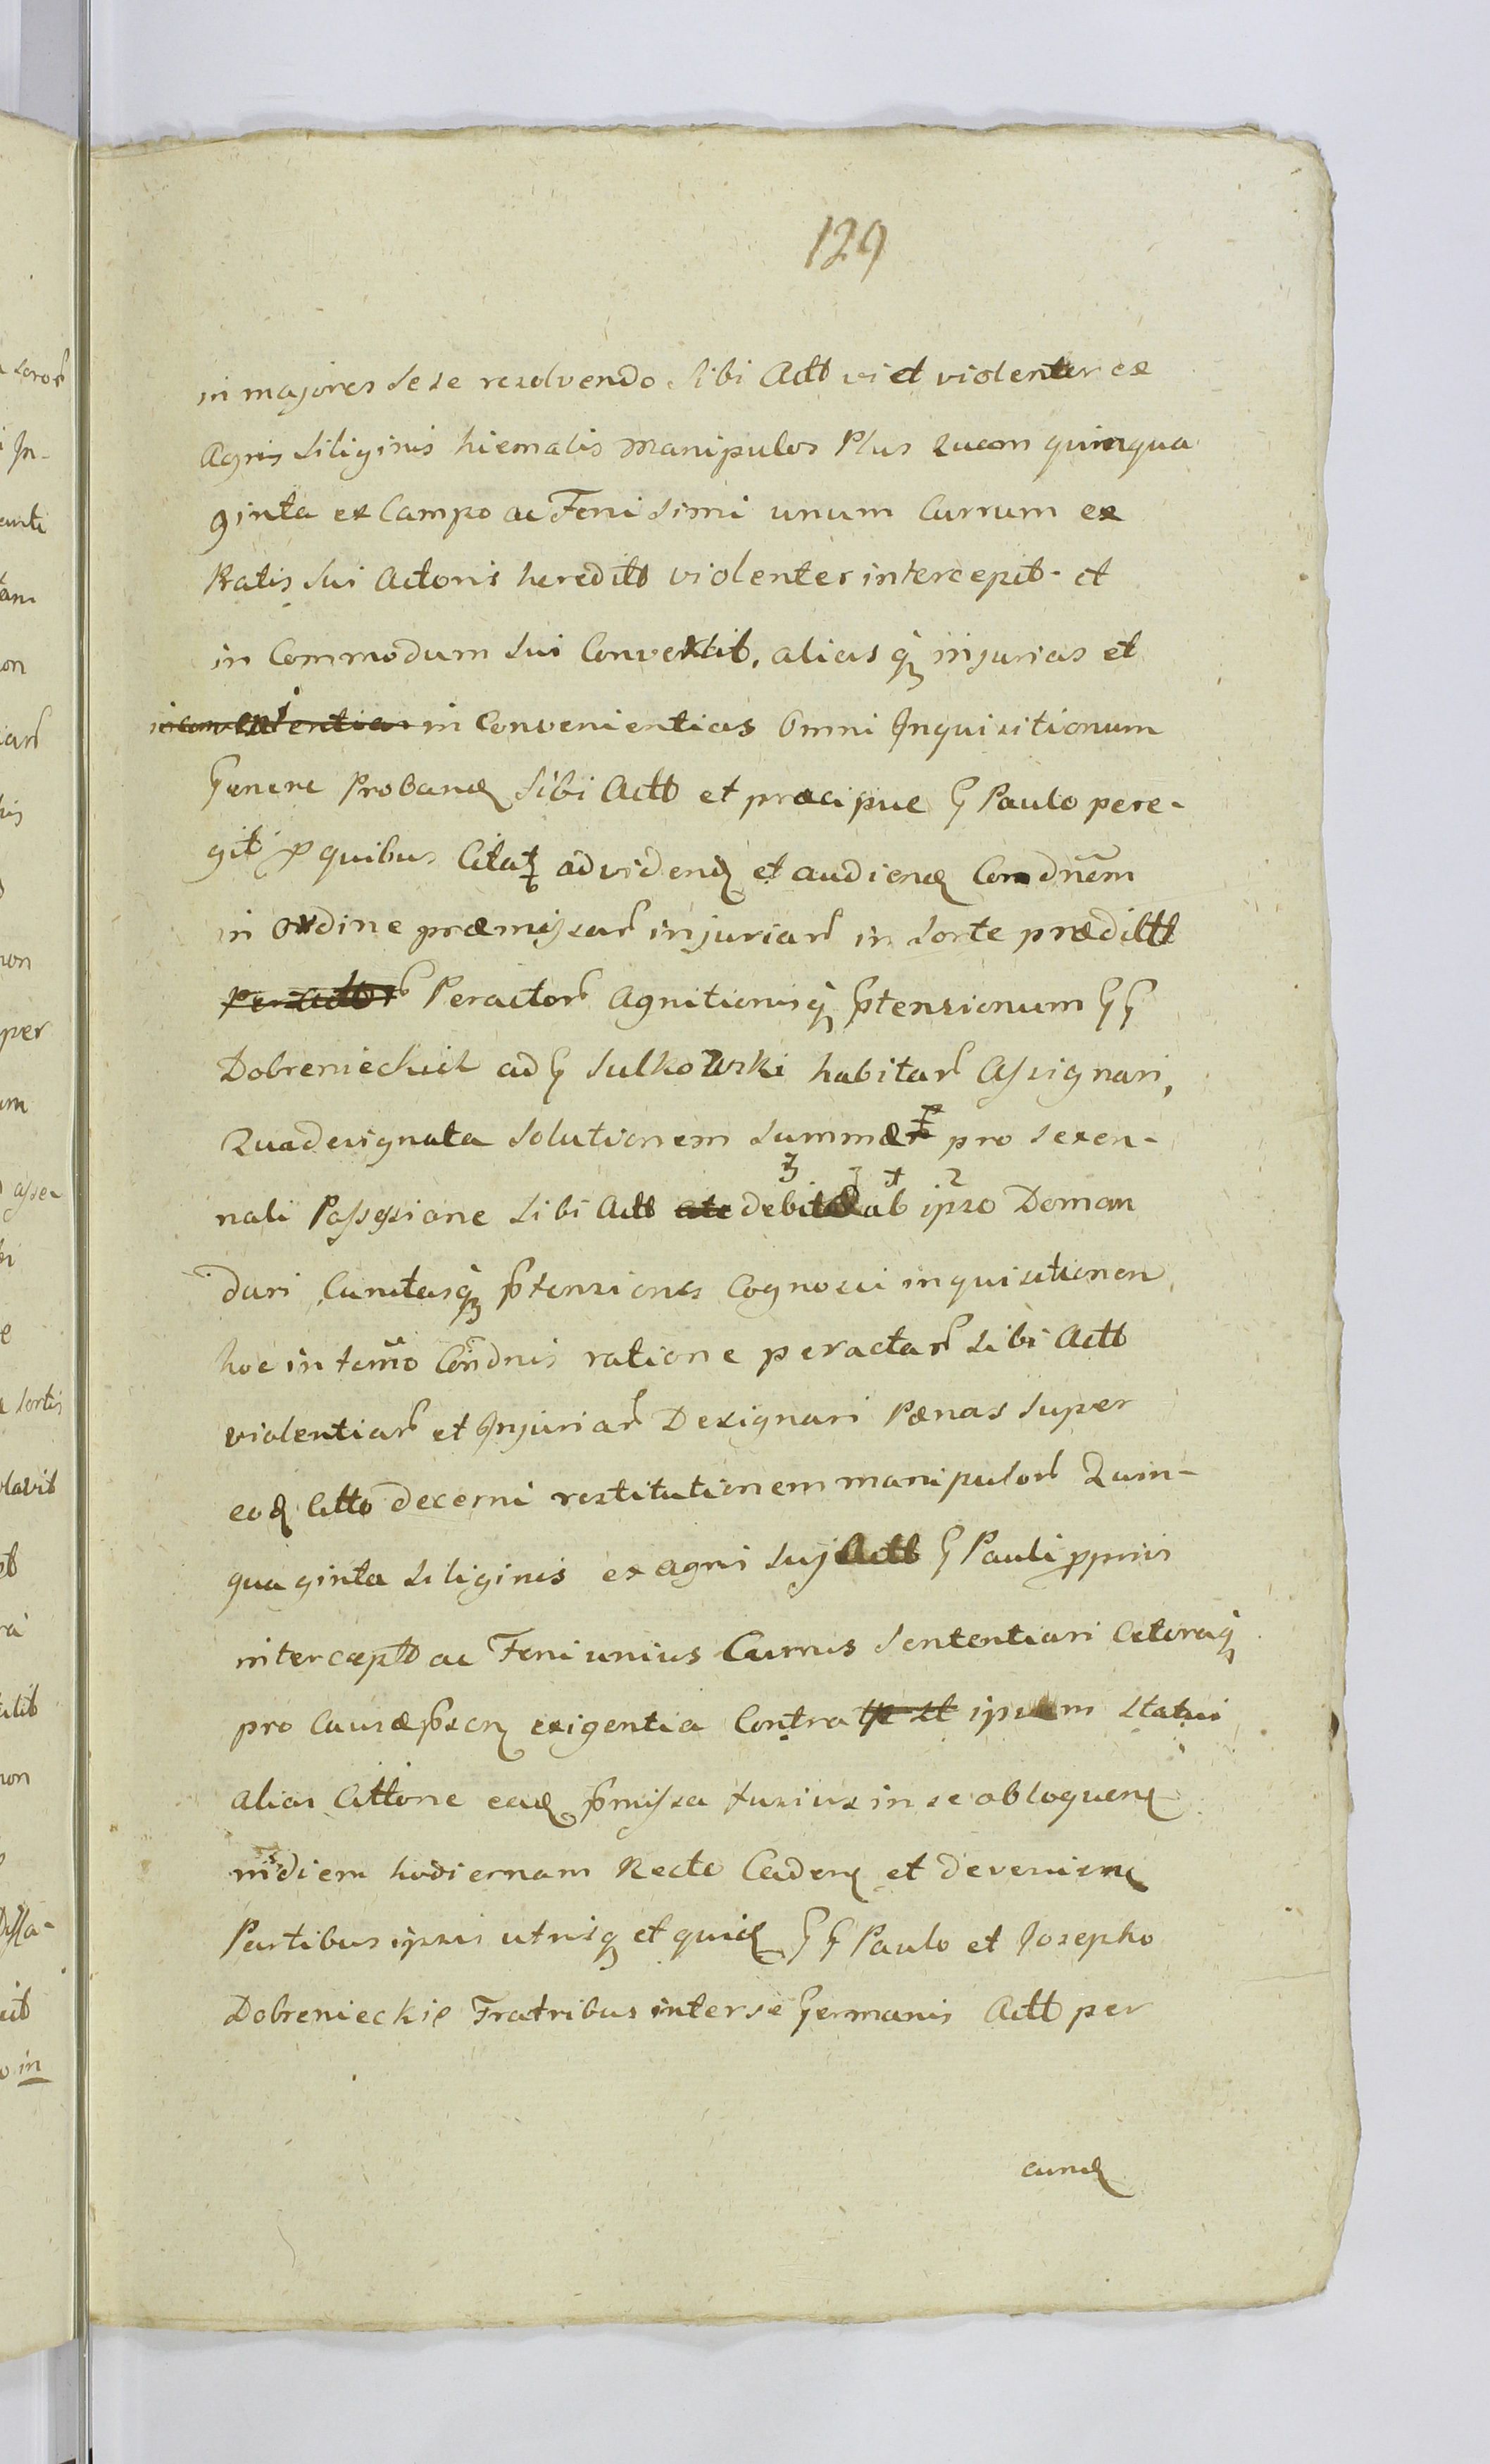 129
in majores sese resolvendo sibi Actt vi et violenter ex
Agris siliginis hiemalis manipulos Plus Quam quinqua
ginta ex Campo ac Feni simi unum Currum ex
Pratis sui Actoris heredittt violenter intercepit et
in Commodum sui Convertit, aliasq injurias et
in Convenientias Omni Inquisitionum
Genere Proband sibi Actt et præcipue G Paulo pere-
git p quibus Citat ad vidend et audiend Condnem
in Ordine præmissar injuriar in sorte præditt
Peractor Agnitionisq ptensionum GG
Dobrenieckich ad G Sulkowski habitar Assignari,
Qua designata solutionem summæ pro sexen-
nali Possessione sibi Actt debitæ ab ipso Deman
dari Cunctasq ptensiones Cognosci inquisitionen
hoc in termo Condnis ratione peractar sibi Actt
violentiar et Injuriar Designari Pænas super
eod Citto decerni restitutionem manipulor Quin-
quaginta siliginis ex agri suj Actt G Pauli ppriis
intercept ac Feni unius Currus sententiari Ceteraq
pro Causæ psen exigentia Contra ipsum statui
alias Cittone ead pmissa fusius in se obloquen
in diem hodiernam Recte Caden et devenien
Partibus ipsis utrisq et quid GG Paulo et Josepho
Dobrenieckie Fratribus inter se Germanis Actt per
eund